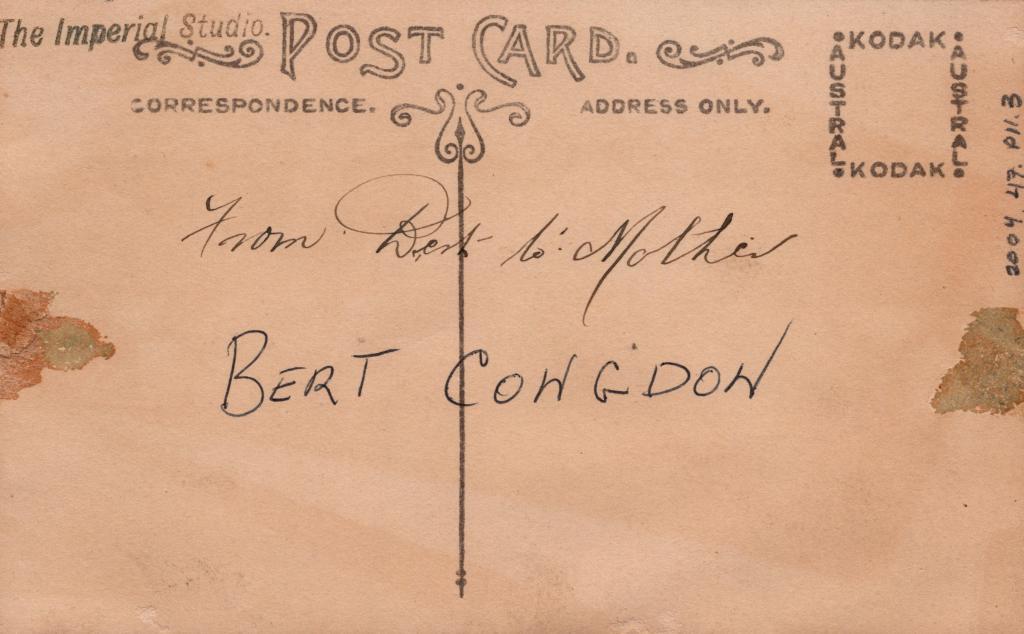 The Imperial Studio.
POST CARD.
CORRESPONDENCE.
ADDRESS ONLY.
KODAK
AUSTRAL
AUSTRAL
KODAK
2004.47.P11.3
From Bert to Mother
BERT CONGDON